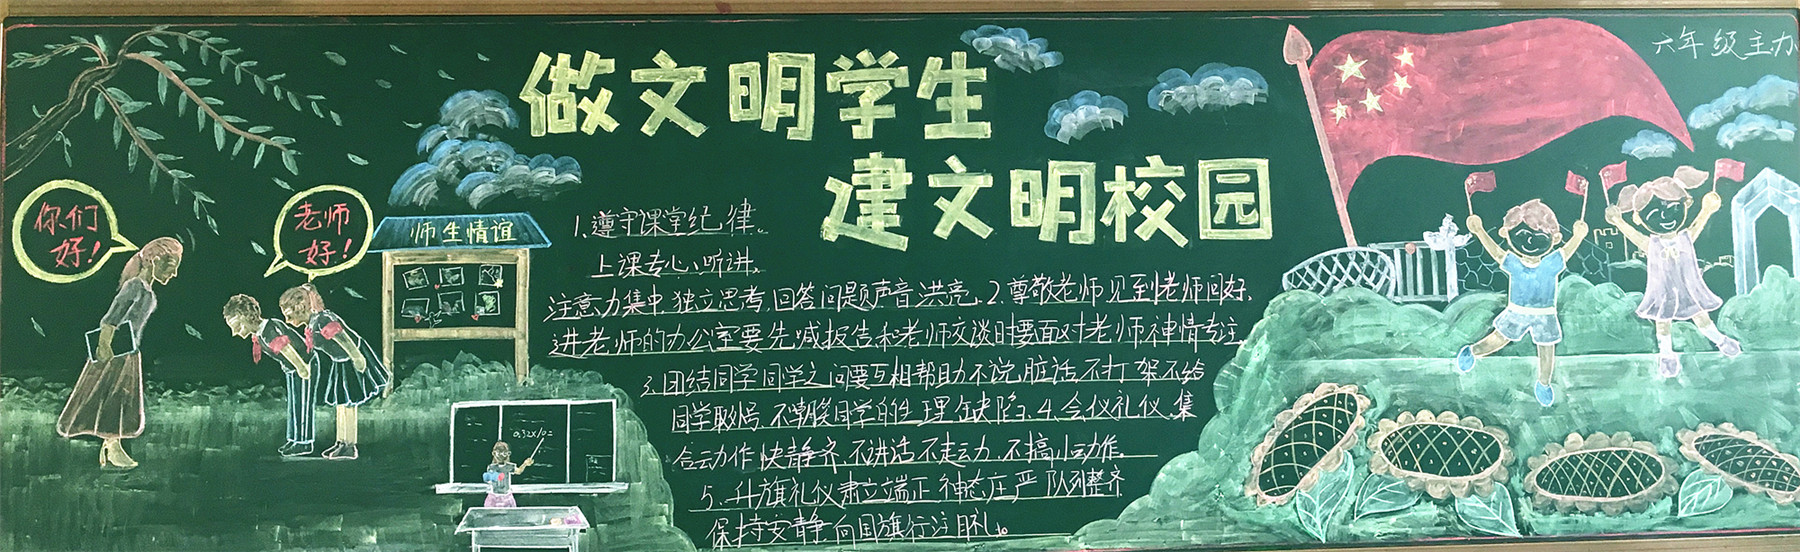 做文明学生
建文明校园
六年级主办
你们
好!
老师
好!
师生情谊
1.遵守课堂纪律。
上课专心、听讲、
注意力集中,独立思考,回答问题声音洪亮。2.尊敬老师见到老师问好、
进老师的办公室要先喊报告和老师交谈时要面对老师神情专注。
3.团结同学同学之间要互相帮助不说脏话不打架不给
同学取外号,不嘲笑同学的生理缺陷。4.会仪礼仪、集
合动作快静齐,不讲话不走动,不搞小动作。
5、升旗礼仪肃立端正神态庄严队列整齐
保持安静,向国旗行注目礼。
0.32×10=